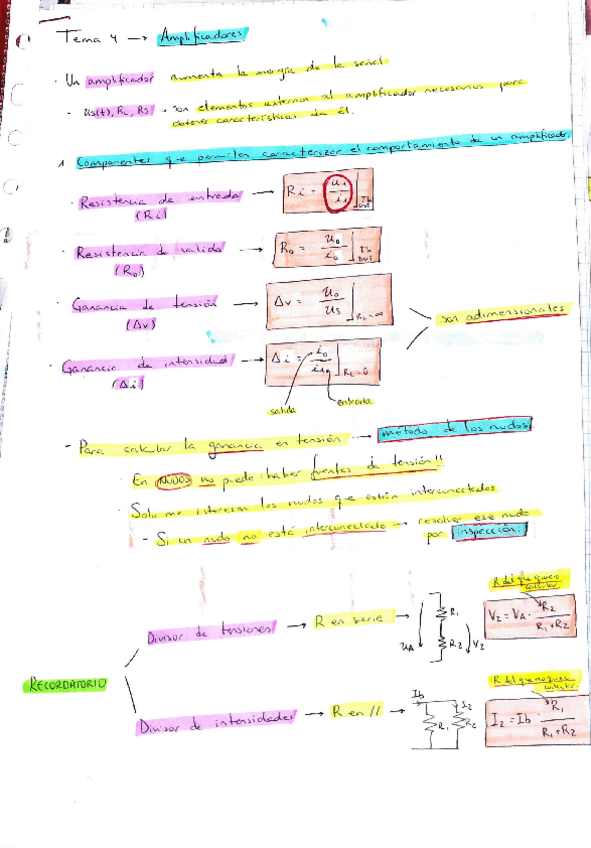 Tema 4 → Amplificadores
· Un amplificador aumenta la energía de la señal
- us(t), RL, Rs → son elementos externos al amplificador necesarios para
obtener características de él.
1 Componentes que permiten caracterizar el comportamiento de un amplificador.
· Resistencia de entrada → Ri = ui / ii
(Ri)
· Resistencia de salida → Ro = uo / io
(Ro)
· Ganancia de tensión → Δv = uo / us | RL=∞
(Δv)
son adimensionales
· Ganancia de intensidad → Δi = io / ii | RL=0
(Δi)
salida entrada
- Para calcular la ganancia en tensión → método de los nudos
· En NUDOS no puede haber fuentes de tensión!!
· Solo me interesan los nudos que están interconectados
- Si un nudo no está interconectado → resolver ese nudo
por inspección.
RECORDATORIO
Divisor de tensiones → R en serie →
uA R1 R2 V2
R del que quiero
calcular
V2 = VA · R2 / R1+R2
Divisor de intensidades → R en // →
Ib I2 R1 R2
R del que no quiero
calcular
I2 = Ib · R1 / R1+R2